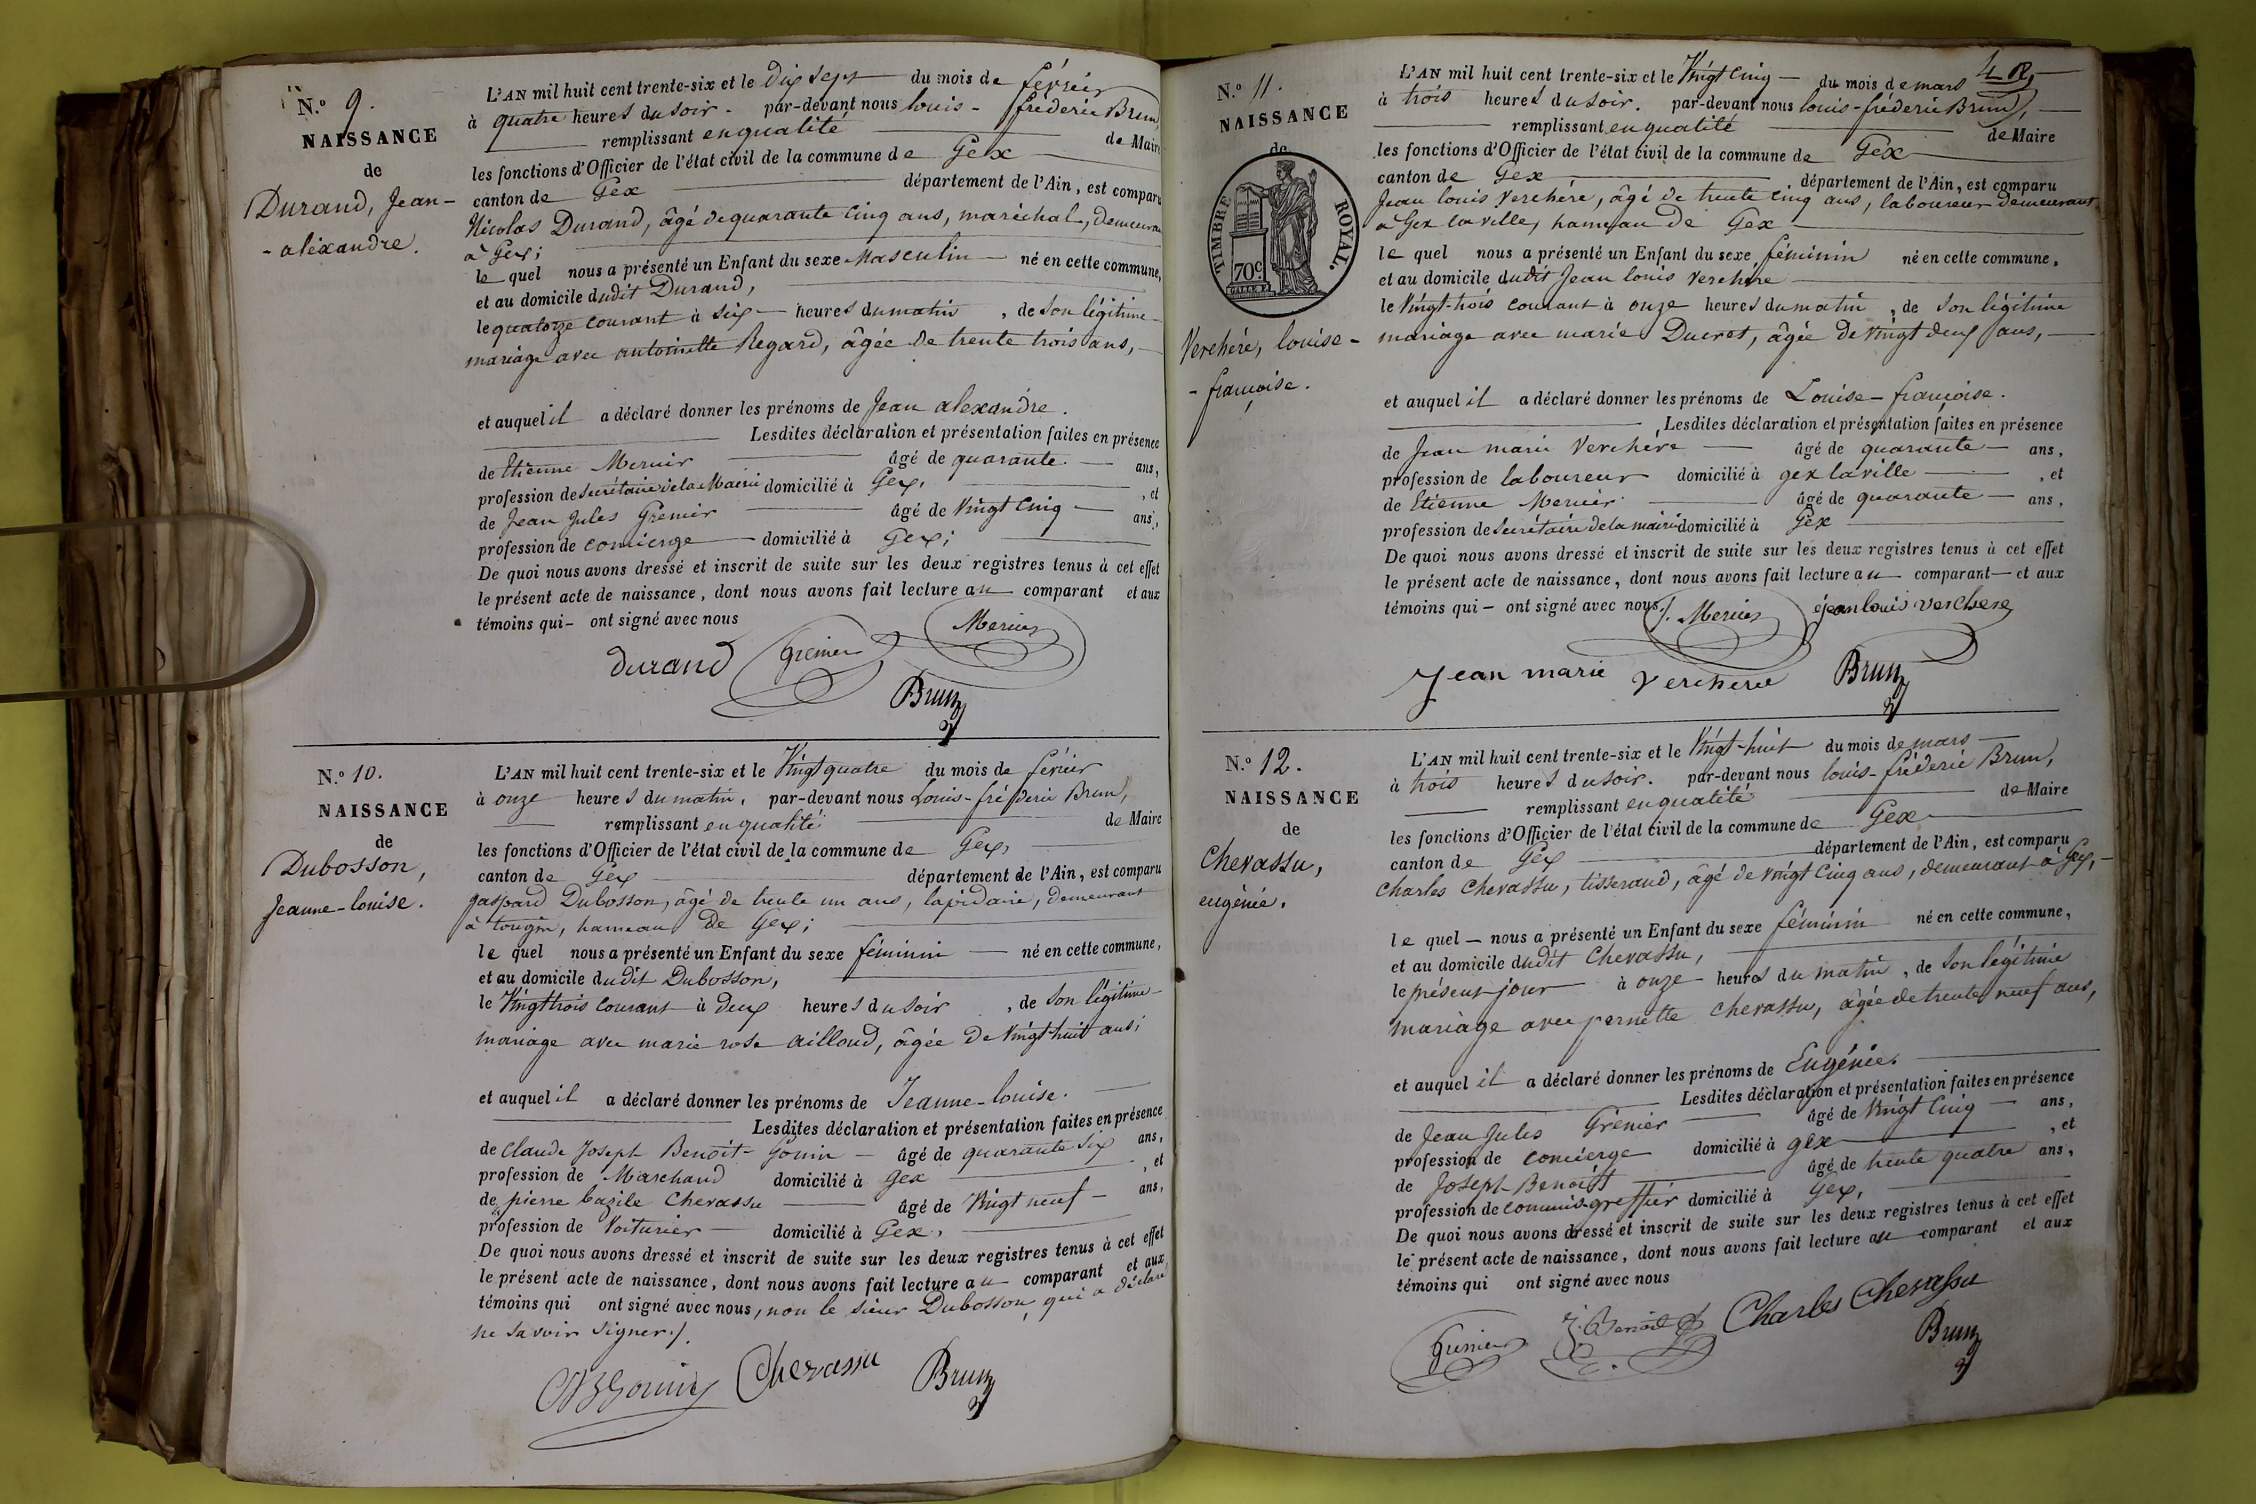 N.º 9.
NAISSANCE
de
Durand, Jean-
-alexandre.
L'AN mil huit cent trente-six et le dix sept du mois de février
à quatre heures du soir. par-devant nous louis-fréderic Brun,
remplissant en qualité de Maire
les fonctions d'Officier de l'état civil de la commune de Gex
canton de Gex département de l'Ain, est comparu
Nicolas Durand, âgé de quarante cinq ans, maréchal, demeurant
à Gex;
le quel nous a présenté un Enfant du sexe Masculin né en cette commune,
et au domicile dudit Durand,
le quatorze courant à six heures du matin, de son légitime
mariage avec antoinette Regard, âgée de trente trois ans,
et auquel il a déclaré donner les prénoms de Jean alexandre.
Lesdites déclaration et présentation faites en présence
de Etienne Mernier âgé de quarante ans,
profession de secrétaire de la Mairie domicilié à Gex, et
de Jean Jules Grenier âgé de vingt cinq ans,
profession de concierge domicilié à Gex;
De quoi nous avons dressé et inscrit de suite sur les deux registres tenus à cet effet
le présent acte de naissance, dont nous avons fait lecture au comparant et aux
témoins qui ont signé avec nous
durand Grenier Mernier
Brun
N.º 10.
NAISSANCE
de
Dubosson,
Jeanne-louise.
L'AN mil huit cent trente-six et le vingt quatre du mois de février
à onze heures du matin, par-devant nous Louis-fréderic Brun,
remplissant en qualité de Maire
les fonctions d'Officier de l'état civil de la commune de Gex,
canton de Gex département de l'Ain, est comparu
gaspard Dubosson, âgé de trente un ans, lapidaire, demeurant
à tougin, hameau de Gex;
le quel nous a présenté un Enfant du sexe féminin né en cette commune,
et au domicile dudit Dubosson,
le vingt trois courant à deux heures du soir, de son légitime
mariage avec marie rose ailloud, âgée de vingt-huit ans;
et auquel il a déclaré donner les prénoms de Jeanne-louise.
Lesdites déclaration et présentation faites en présence
de Claude Joseph Benoit-Gonin âgé de quarante six ans,
profession de Marchand domicilié à Gex, et
de pierre bazile Chevassu âgé de vingt neuf ans,
profession de voiturier domicilié à Gex,
De quoi nous avons dressé et inscrit de suite sur les deux registres tenus à cet effet
le présent acte de naissance, dont nous avons fait lecture au comparant et aux
témoins qui ont signé avec nous, non le sieur Dubosson, qui a déclaré
ne savoir signer./.
Chevassu Brun
N.º 11.
NAISSANCE
de
TIMBRE ROYAL.
70c
Verchére, louise-
-françoise.
L'AN mil huit cent trente-six et le vingt cinq du mois de mars
à trois heures du soir. par-devant nous louis-fréderic Brun,
remplissant en qualité de Maire
les fonctions d'Officier de l'état civil de la commune de Gex
canton de Gex département de l'Ain, est comparu
Jean louis Verchére, âgé de trente cinq ans, laboureur demeurant
à Gex la ville, hameau de Gex
le quel nous a présenté un Enfant du sexe féminin né en cette commune,
et au domicile dudit Jean louis verchere
le vingt-trois courant à onze heures du matin, de son légitime
mariage avec marie Ducret, âgée de vingt deux ans,
et auquel il a déclaré donner les prénoms de Louise-françoise.
Lesdites déclaration et présentation faites en présence
de Jean marie Verchére âgé de quarante ans,
profession de laboureur domicilié à gex la ville, et
de Etienne Mernier âgé de quarante ans,
profession de secrétaire de la mairie domicilié à Gex
De quoi nous avons dressé et inscrit de suite sur les deux registres tenus à cet effet
le présent acte de naissance, dont nous avons fait lecture au comparant et aux
témoins qui ont signé avec nous./. Mernier jean louis verchere
Jean marie verchere Brun
N.º 12.
NAISSANCE
de
Chevassu,
eugénie.
L'AN mil huit cent trente-six et le vingt-huit du mois de mars
à trois heures du soir. par-devant nous louis-fréderic Brun,
remplissant en qualité de Maire
les fonctions d'Officier de l'état civil de la commune de Gex
canton de Gex département de l'Ain, est comparu
Charles Chevassu, tisserand, âgé de vingt cinq ans, demeurant à Gex,
le quel nous a présenté un Enfant du sexe féminin né en cette commune,
et au domicile dudit Chevassu,
le présent jour à onze heures du matin, de son légitime
mariage avec pernette chevassu, âgée de trente neuf ans,
et auquel il a déclaré donner les prénoms de Eugénie.
Lesdites déclaration et présentation faites en présence
de Jean Jules Grénier âgé de vingt cinq ans,
profession de concierge domicilié à gex, et
de Joseph Benoit âgé de trente quatre ans,
profession de commis-greffier domicilié à Gex,
De quoi nous avons dressé et inscrit de suite sur les deux registres tenus à cet effet
le présent acte de naissance, dont nous avons fait lecture au comparant et aux
témoins qui ont signé avec nous
Grenier J. Benoit Charles Chevassu
Brun